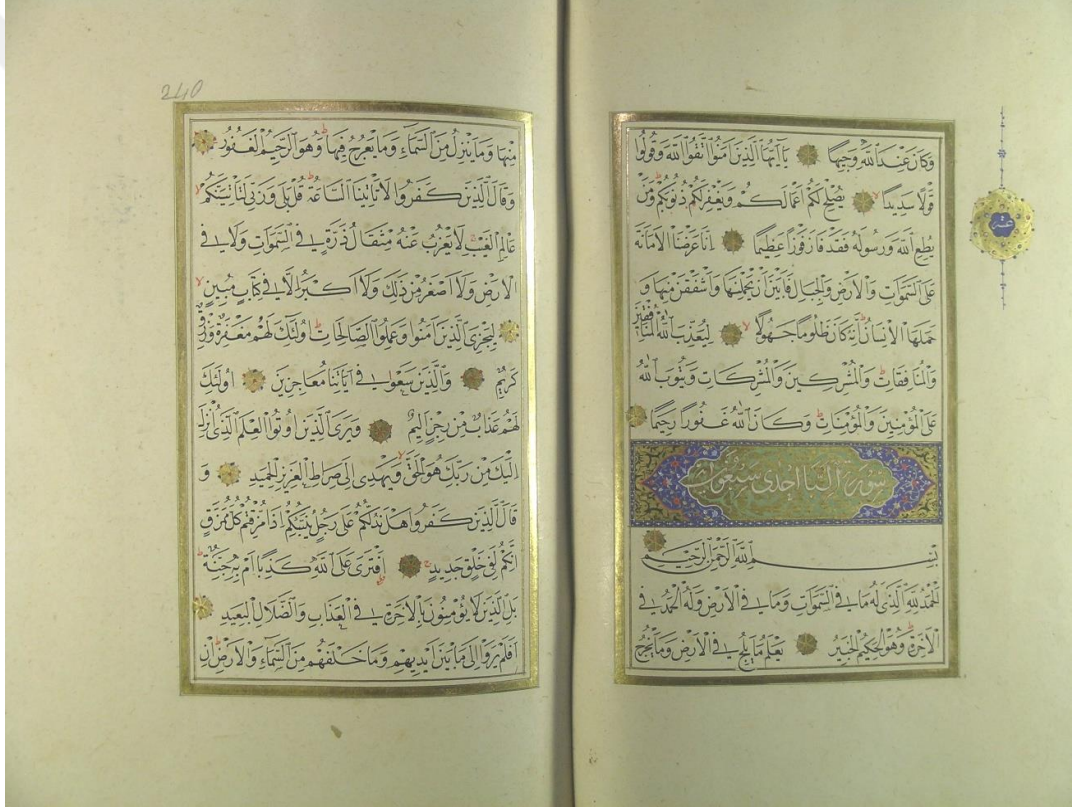 وَكَانَ عِنْدَ اللّٰهِ وَجِيهًا يَا اَيُّهَا الَّذِينَ اٰمَنُوا اتَّقُوا اللّٰهَ وَقُولُوا
قَوْلًا سَدِيدًا يُصْلِحْ لَكُمْ اَعْمَالَكُمْ وَيَغْفِرْ لَكُمْ ذُنُوبَكُمْ وَمَنْ
يُطِعِ اللّٰهَ وَرَسُولَهُ فَقَدْ فَازَ فَوْزًا عَظِيمًا اِنَّا عَرَضْنَا الْاَمَانَةَ
عَلَى السَّمٰوَاتِ وَالْاَرْضِ وَالْجِبَالِ فَاَبَيْنَ اَنْ يَحْمِلْنَهَا وَاَشْفَقْنَ مِنْهَا وَ
حَمَلَهَا الْاِنْسَانُ اِنَّهُ كَانَ ظَلُومًا جَهُولًا لِيُعَذِّبَ اللّٰهُ الْمُنَافِقِينَ
وَالْمُنَافِقَاتِ وَالْمُشْرِكِينَ وَالْمُشْرِكَاتِ وَيَتُوبَ اللّٰهُ
عَلَى الْمُؤْمِنِينَ وَالْمُؤْمِنَاتِ وَكَانَ اللّٰهُ غَفُورًا رَحِيمًا
سورة السبا احدى
بِسْمِ اللّٰهِ الرَّحْمٰنِ الرَّحِيمِ
اَلْحَمْدُ لِلّٰهِ الَّذِي لَهُ مَا فِي السَّمٰوَاتِ وَمَا فِي الْاَرْضِ وَلَهُ الْحَمْدُ فِي
الْاٰخِرَةِ وَهُوَ الْحَكِيمُ الْخَبِيرُ يَعْلَمُ مَا يَلِجُ فِي الْاَرْضِ وَمَا يَخْرُجُ
عشر
240
مِنْهَا وَمَا يَنْزِلُ مِنَ السَّمَاءِ وَمَا يَعْرُجُ فِيهَا وَهُوَ الرَّحِيمُ الْغَفُورُ
وَقَالَ الَّذِينَ كَفَرُوا لَا تَأْتِينَا السَّاعَةُ قُلْ بَلٰى وَرَبِّي لَتَأْتِيَنَّكُمْ
عَالِمِ الْغَيْبِ لَا يَعْزُبُ عَنْهُ مِثْقَالُ ذَرَّةٍ فِي السَّمٰوَاتِ وَلَا فِي
الْاَرْضِ وَلَا اَصْغَرُ مِنْ ذٰلِكَ وَلَا اَكْبَرُ اِلَّا فِي كِتَابٍ مُبِينٍ
لِيَجْزِيَ الَّذِينَ اٰمَنُوا وَعَمِلُوا الصَّالِحَاتِ اُولٰئِكَ لَهُمْ مَغْفِرَةٌ وَرِزْقٌ
كَرِيمٌ وَالَّذِينَ سَعَوْا فِي اٰيَاتِنَا مُعَاجِزِينَ اُولٰئِكَ
لَهُمْ عَذَابٌ مِنْ رِجْزٍ اَلِيمٌ وَيَرَى الَّذِينَ اُوتُوا الْعِلْمَ الَّذِي اُنْزِلَ
اِلَيْكَ مِنْ رَبِّكَ هُوَ الْحَقَّ وَيَهْدِي اِلٰى صِرَاطِ الْعَزِيزِ الْحَمِيدِ وَ
قَالَ الَّذِينَ كَفَرُوا هَلْ نَدُلُّكُمْ عَلٰى رَجُلٍ يُنَبِّئُكُمْ اِذَا مُزِّقْتُمْ كُلَّ مُمَزَّقٍ
اِنَّكُمْ لَفِي خَلْقٍ جَدِيدٍ اَفْتَرٰى عَلَى اللّٰهِ كَذِبًا اَمْ بِهِ جِنَّةٌ
بَلِ الَّذِينَ لَا يُؤْمِنُونَ بِالْاٰخِرَةِ فِي الْعَذَابِ وَالضَّلَالِ الْبَعِيدِ
اَفَلَمْ يَرَوْا اِلٰى مَا بَيْنَ اَيْدِيهِمْ وَمَا خَلْفَهُمْ مِنَ السَّمَاءِ وَالْاَرْضِ اِنْ